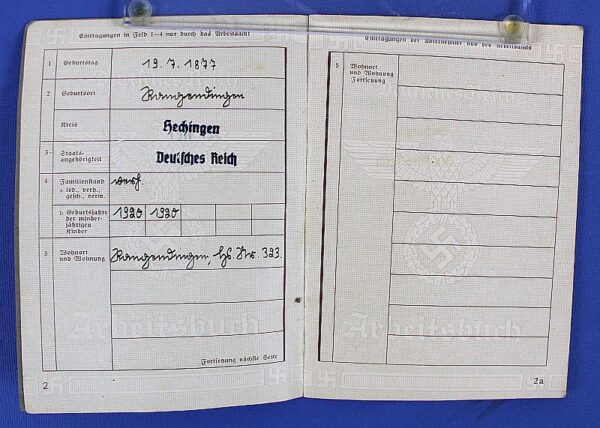 Eintragungen in Feld 1—4 nur durch das Arbeitsamt
1 Geburtstag 19. 7. 1877
2 Geburtsort Rangendingen
Kreis Hechingen
3 Staats-
angehörigkeit Deutsches Reich
4 Familienstand verh.
a led., verh.,
gesch., verw.
b Geburtsjahre 1920 1920
der minder-
jährigen
Kinder
5 Wohnort Rangendingen, Hs. Nr. 323.
und Wohnung
Arbeitsbuch
Fortsetzung nächste Seite
2
Eintragungen der Unternehmer und des Arbeitsamts
5 Wohnort
und Wohnung
Fortsetzung
Arbeitsbuch
2a